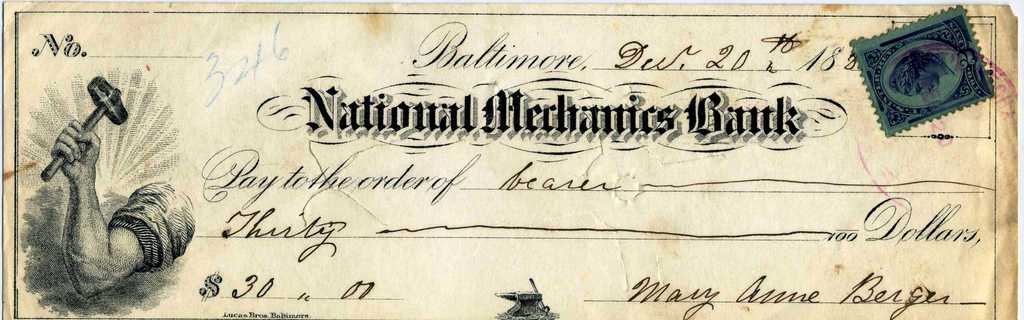 No. 346
Baltimore, Dec. 20th 18
National Mechanics Bank
Pay to the order of bearer
Thirty 100 Dollars,
$ 30 " 00
Mary Anne Berger
Lucas Bros. Baltimore.